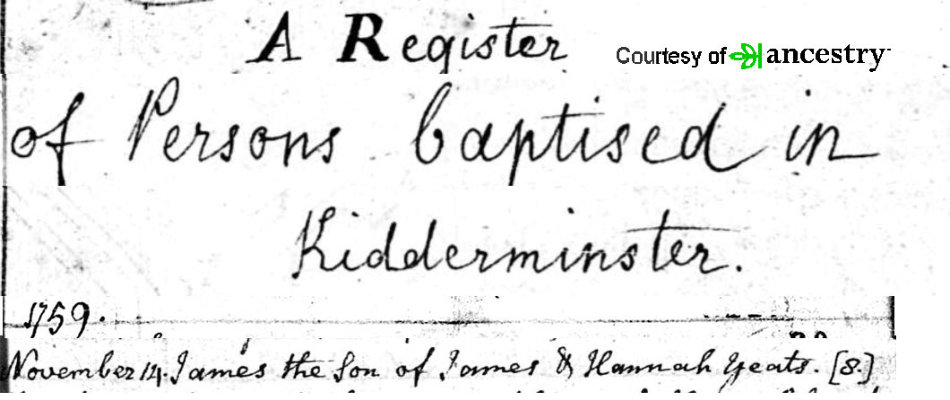 A Register
Courtesy of ancestry
of Persons baptised in
Kidderminster.
1759.
November 14. James the Son of James & Hannah Yeats. [8.]